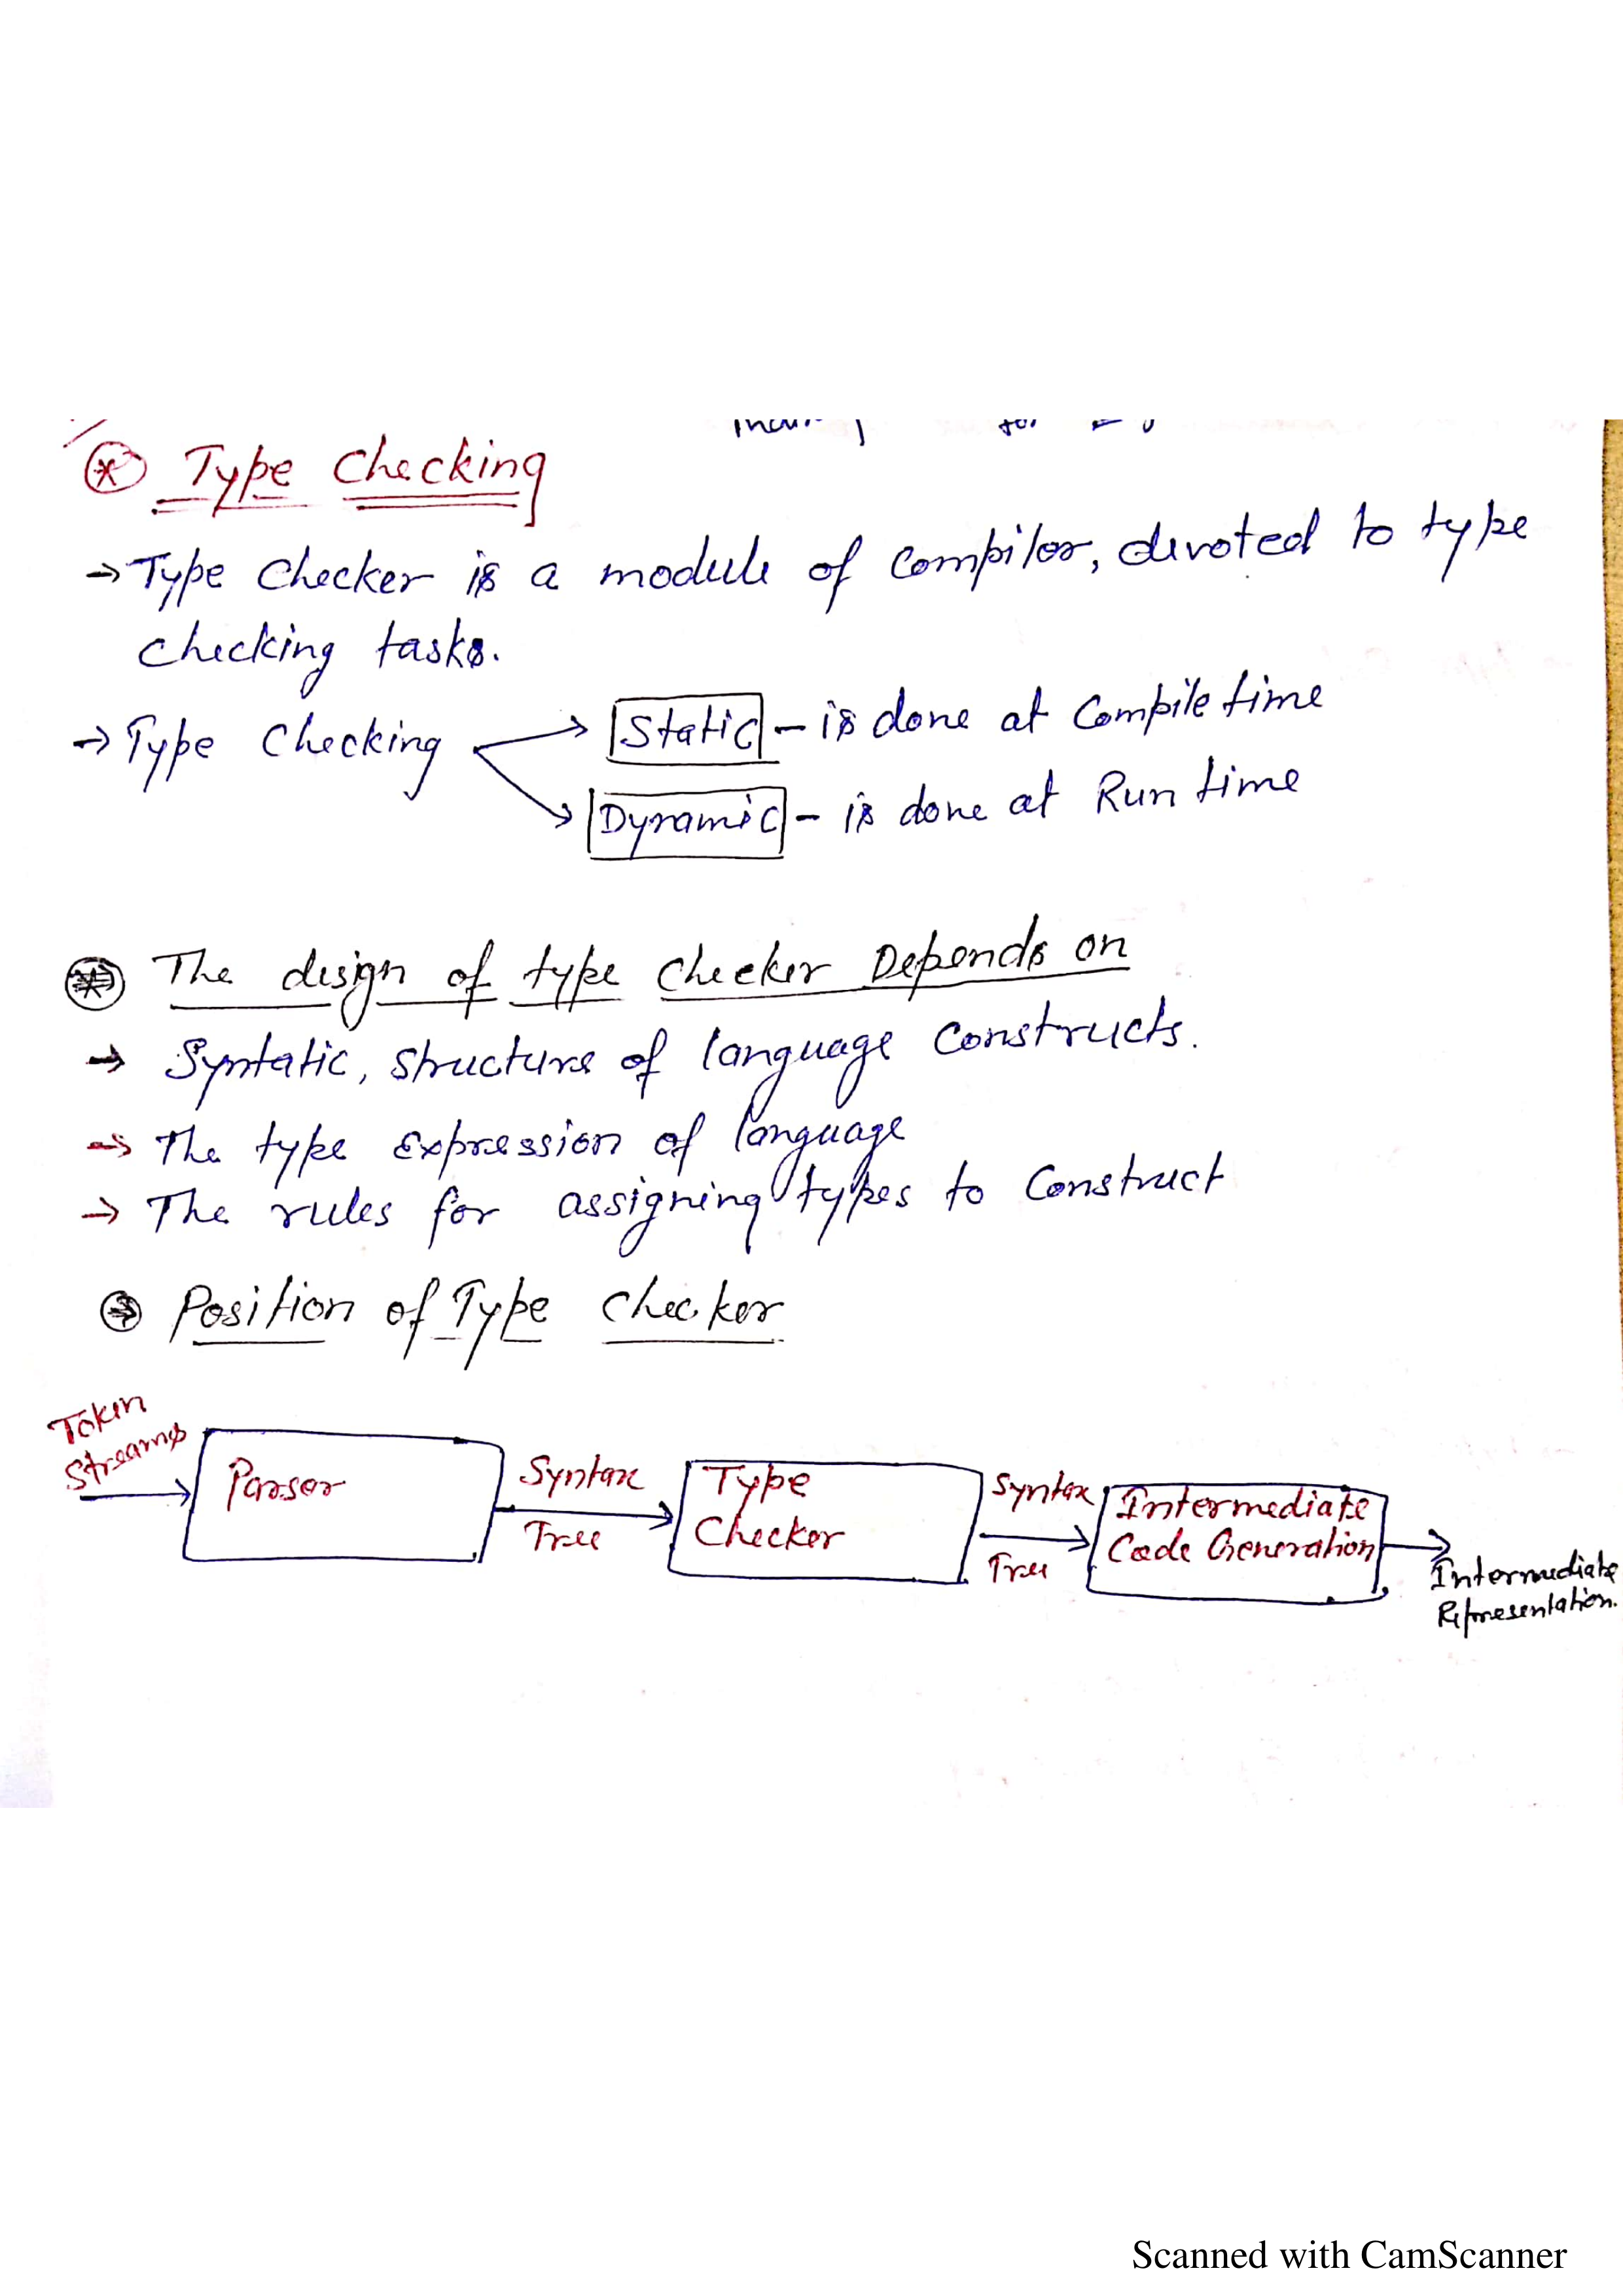 Type Checking
→ Type Checker is a module of Compiler, devoted to type
checking tasks.
→ Type Checking
Static - is done at Compile time
Dynamic - is done at Run time
The design of type checker Depends on
→ Syntatic, structure of language Constructs.
→ The type Expression of language
→ The rules for assigning types to Construct
Position of Type Checker
Token
Streams
Parser
Syntax
Tree
Type
Checker
Syntax
Tree
Intermediate
Code Generation
Intermediate
Representation.
Scanned with CamScanner